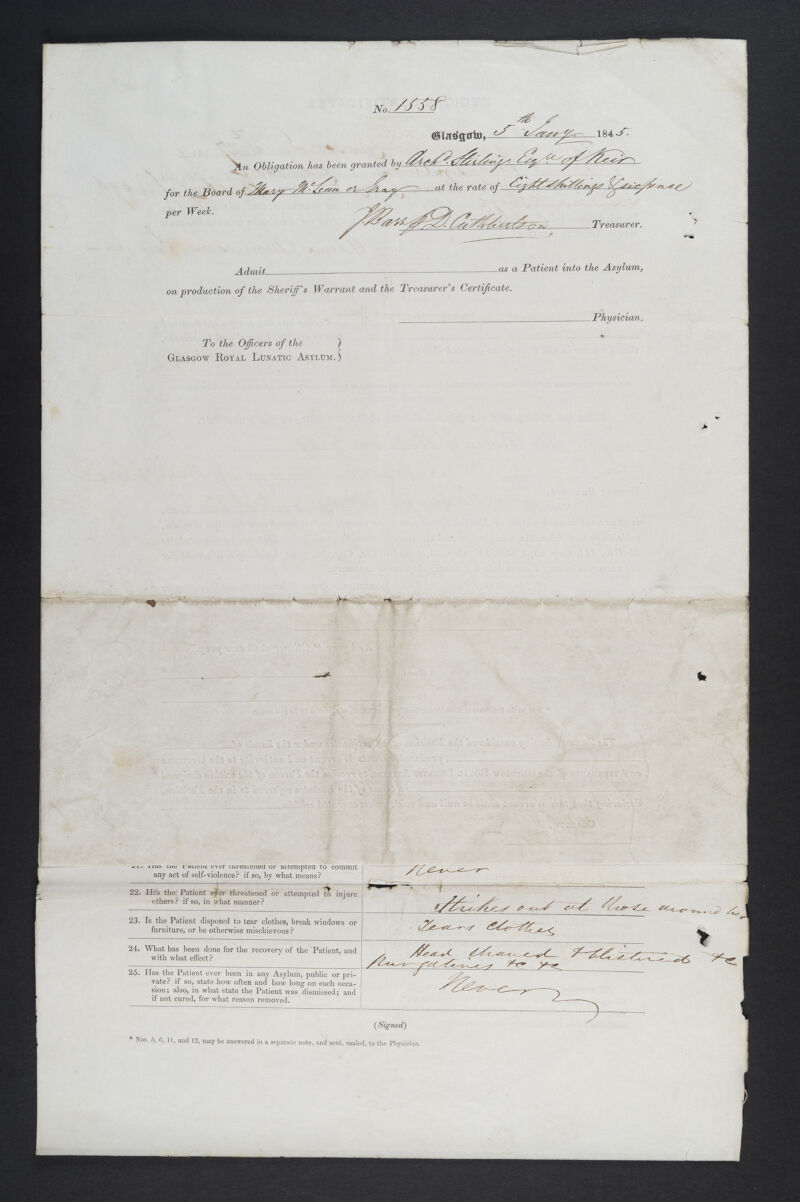 No. 1558
Glasgow, 5th Jany 1845.
An Obligation has been granted by Archd Stirling Esqre of Keir
for the Board of Mary McLean or Gray at the rate of Eight Shillings & sixpence
per Week.
J Barr p D. Cuthbertson, Treasurer.
Admit as a Patient into the Asylum,
on production of the Sheriff's Warrant and the Treasurer's Certificate.
Physician.
To the Officers of the
Glasgow Royal Lunatic Asylum.
21. Has the Patient ever threatened or attempted to commit
any act of self-violence? if so, by what means?
Never
22. Has the Patient ever threatened or attempted to injure
others? if so, in what manner?
Strikes out at those around her
23. Is the Patient disposed to tear clothes, break windows or
furniture, or be otherwise mischievous?
Tears Clothes
24. What has been done for the recovery of the Patient, and
with what effect?
Head shaved & blistered &c
Purgatives &c &c
25. Has the Patient ever been in any Asylum, public or pri-
vate? if so, state how often and how long on each occa-
sion; also, in what state the Patient was dismissed; and
if not cured, for what reason removed.
Never
(Signed)
* Nos. 5, 6, 11, and 12, may be answered in a separate note, and sent, sealed, to the Physician.